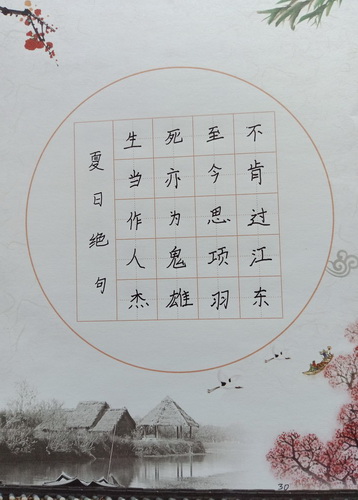 夏日绝句
生当作人杰
死亦为鬼雄
至今思项羽
不肯过江东
30